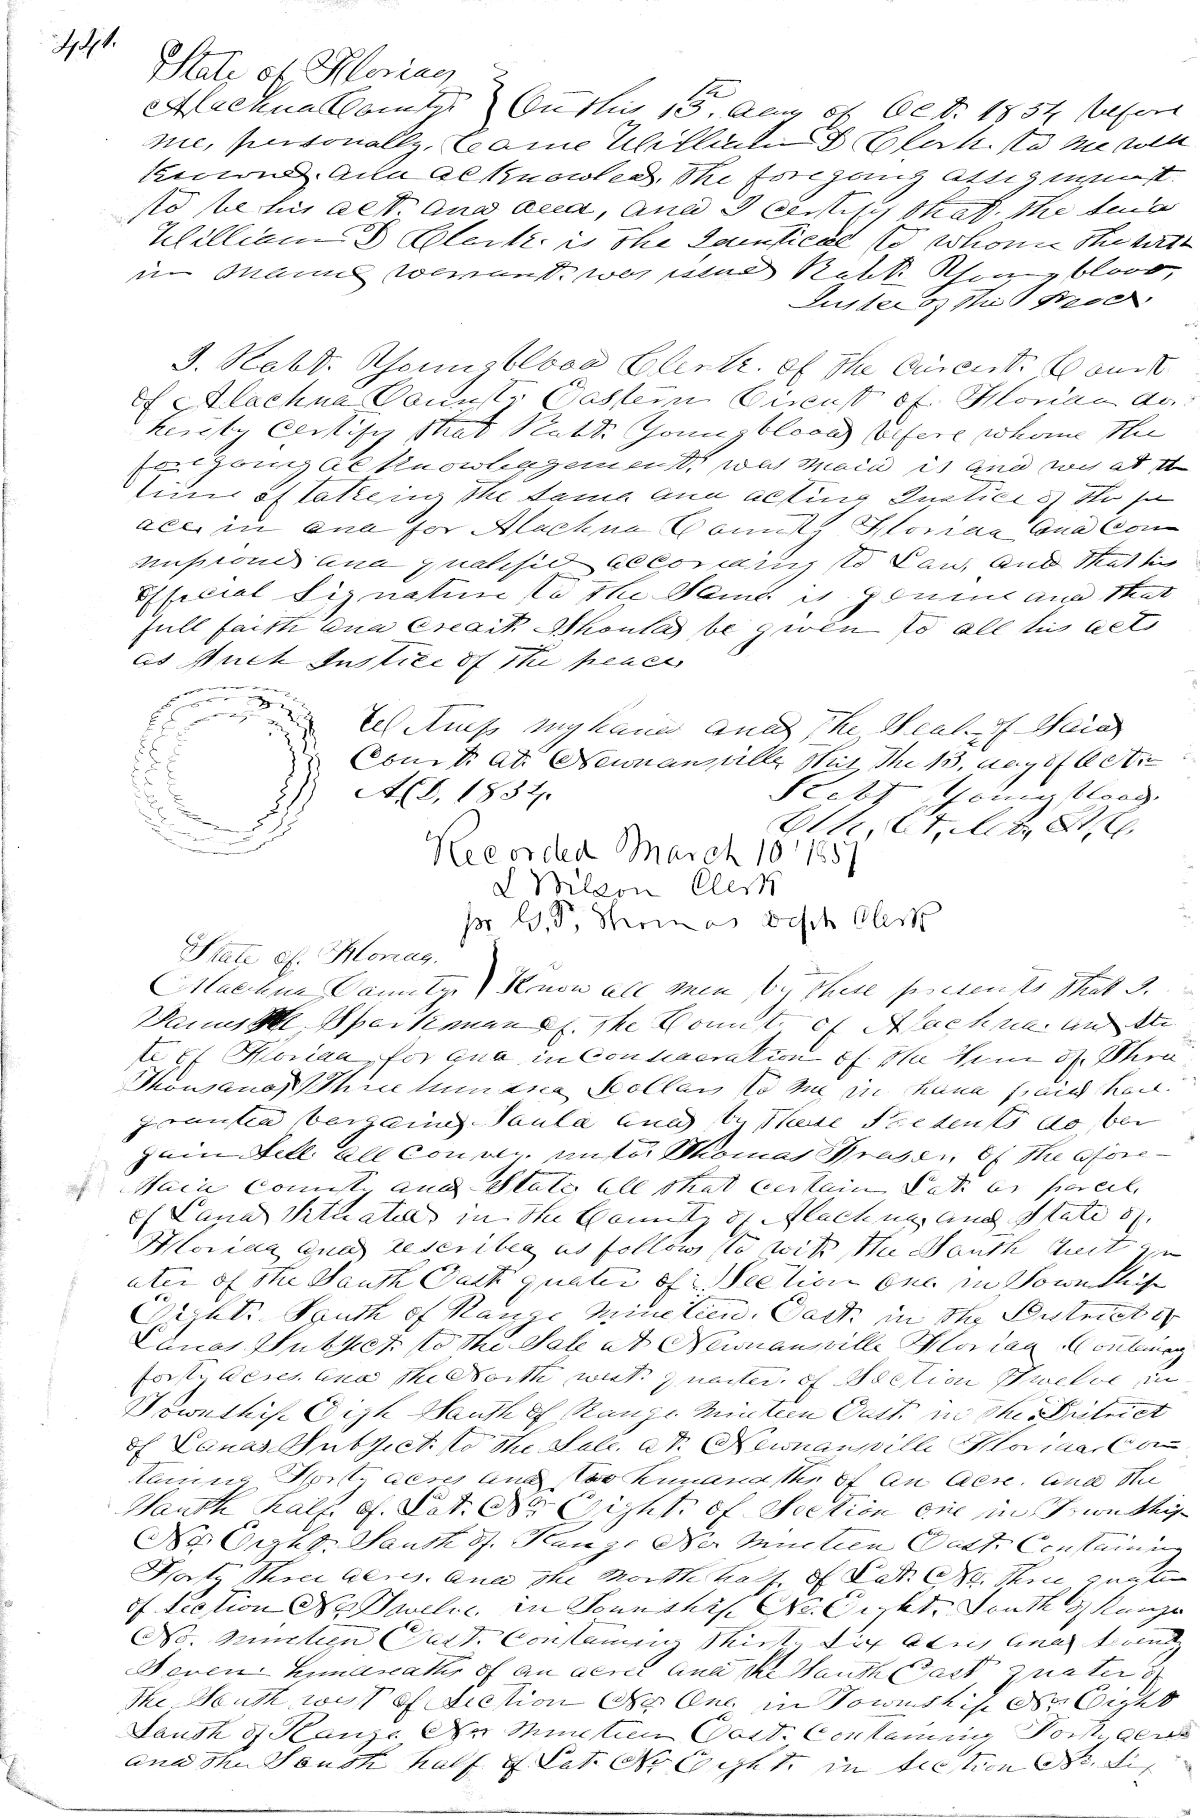 441.
State of Florida
Alachua County } On this 13th day of Oct. 1854 before
me, personally, Came William D Clerk. to me well
known. and acknowled, the foregoing assignment
to be his act. and deed, and I certify that the Said
William D Clerk. is the Identical to whome the with
in warrant was issued Robt. Youngblood,
Justice of the Peace.
I. Robt. Youngblood Clerk. of the Circuit Court
of Alachua County Eastern Circuit of Florida do.
hereby certify that Robt. Youngblood before whome the
foregoing acknowledgement. was maid is and was at the
time of takeing the same and acting Justice of the pe
ace. in and for Alachua County Florida and Com
missioned and qualified according to Law, and that his
official Signature to the Same is genuine and that
full faith and credit Should be given to all his acts
as Such Justice of the peace
Witness my hand and the Seal of Said
Court at Newnansville this the 13th day of Oct.
A.D, 1854. Robt Youngblood.
Clk, Ct,
Recorded March 10' 1857
L Wilson Clerk
pr G. P, Thomas Depth Clerk
State of Florida.
Alachua County } Know all men by these presents that I.
Sparkman of. the County of Alachua. and Sta
te of Florida for and in Consideration of the Sum of Three
Thousand Three hundred Dollars to me in hand paid have
granted bargained Sould and by these Presents do bar
gain Sell all Convey. unto Thomas Fraser, of the afore-
Said County and State all that certain Lot. or parcel,
of Land Situated in the County of Alachua and State of.
Florida and described as follows to wit the South west qu
ater of the South East quater of Section one in Township
Eight. South of Range Nineteen. East in the District of
Lands Subject to the Sale at Newnansville Florida Containing
forty acres. and the North west quarter. of Section Twelve in
Township Eigh South of Range Nineteen East. in the District
of Lands Subject. to the Sale. at. Newnansville Florida. Con=
taining Forty acres and too hundredths of an acre. and the
South half. of. Lot. No Eight. of Section one in Township
No. Eight. South of. Range No. Nineteen East. Containing
Forty three acres. and the North half. of Lot. No. three quater
of Section No. Twelve. in Township No. Eight. South of Range
No. Nineteen East. Containing thirty Six acres and Seventy
Seven hundredths of an acre and the South East quater of
the South west of Section No. One in Township No. Eight
South of Range No. Nineteen East. Containing Forty acres
and the South half of Lot. No. Eight. in Section No. Six